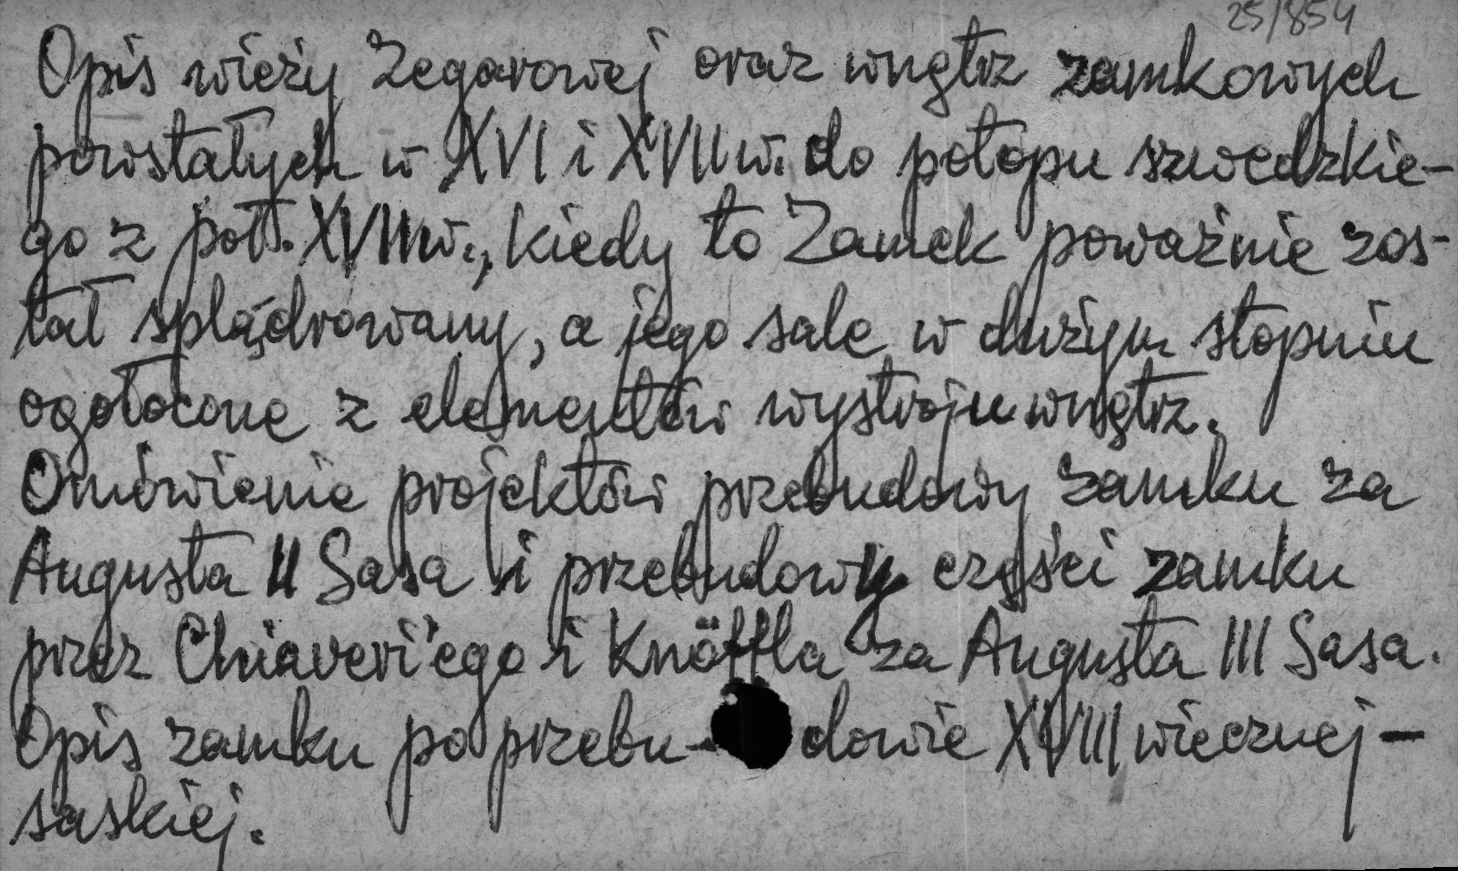 25/854
Opis wieży Zegarowej oraz wnętrz zamkowych
powstałych w XVI i XVII w. do potopu szwedzkie-
go z poł. XVII w., kiedy to Zamek poważnie zos-
tał splądrowany, a jego sale w dużym stopniu
ogołocone z elementów wystroju wnętrz.
Omówienie projektów przebudowy zamku za
Augusta II Sasa i przebudowy części zamku
przez Chiaveri'ego i Knöffla za Augusta III Sasa.
Opis zamku po przebu-dowie XVIII wiecznej –
saskiej.